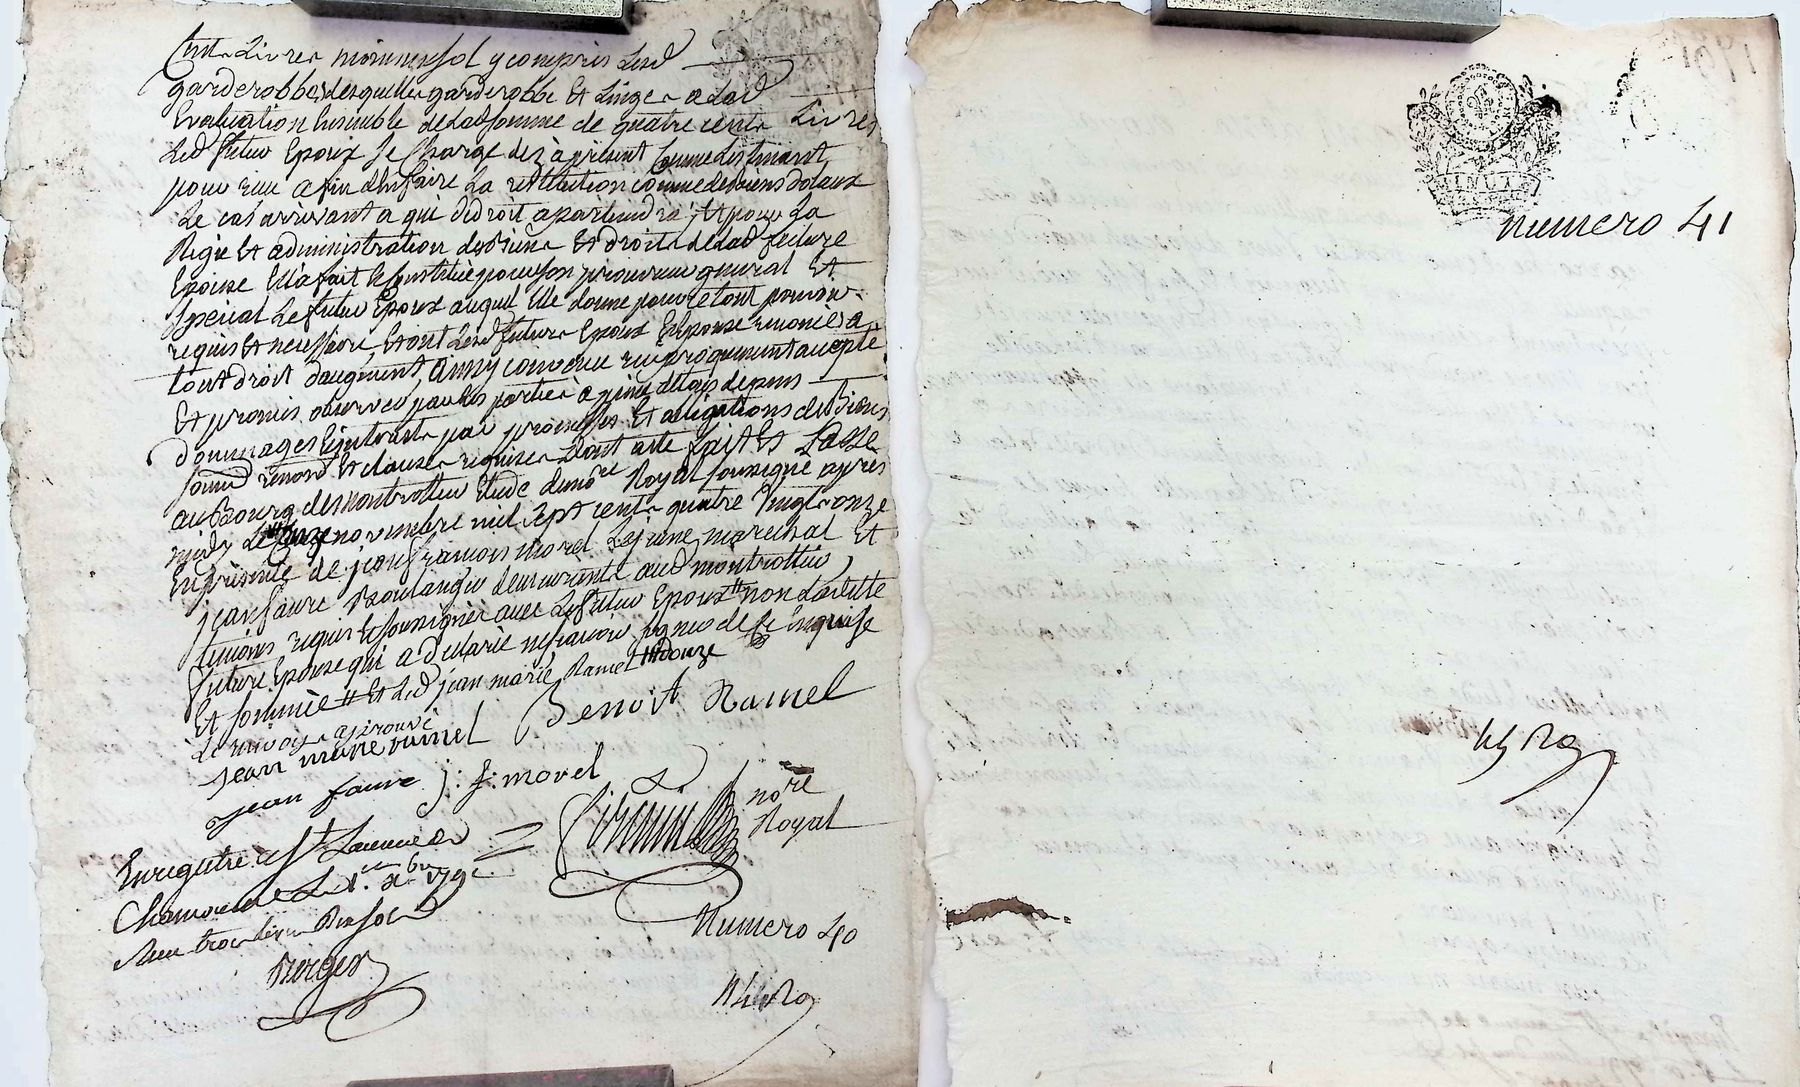 Cent Livres moins un sol y compris Lesd
garderobbe, Lesquelles garderobbe Et Linges a Lad
Evaluation Ensemble de Lad somme de quatre cents Livres
Led futur Epoux se Charge des à présent Comme des
pour Eux afin d'En faire La restitution comme des biens dotaux
Le cas arrivant a qui de droit apartiendra, Et pour La
Régie Et administration des biens Et droits de Lad future
Epouse Ella fait Et Constitué pour son procureur general Et
special Le futur Epoux auquel Elle donne pour ce tout pouvoir
requis Et necessaire, Et ont Lesd futurs Epoux Et Epouse renoncés a
tout droit daugment, Ainsy convenu reciproquement accepté
Et promis observer par les parties à peine de tous depens
dommages Interests par promesses Et obligations des biens
soumis renon Et clauses requises dont acte fait Et Passé
au Bourg de Montrottier Etude du nore Royal soussigné après
midy Le onze novembre mil sept cents quatre vingt onze
En présence de jean francois morel Le jeune marechal Et
jean faure Boulanger demeurants aud montrottier
temoins requis Et soussignés avec Le futur Epoux # non Ladette
future Epouse qui a déclaré ne savoir signer de ce Enquise
Et sommèe # Et Led jean marie Ramel ## douze
Le renvoy aprouvé
jean marie ramel Benoit Ramel
jean faure j: f: morel
nore
Royal
Enregistré a St Laurent de
Chamousset Le 1er xbre 1791
Reçu trois Livres Dix sols
Berger
Numero 40
numero 41